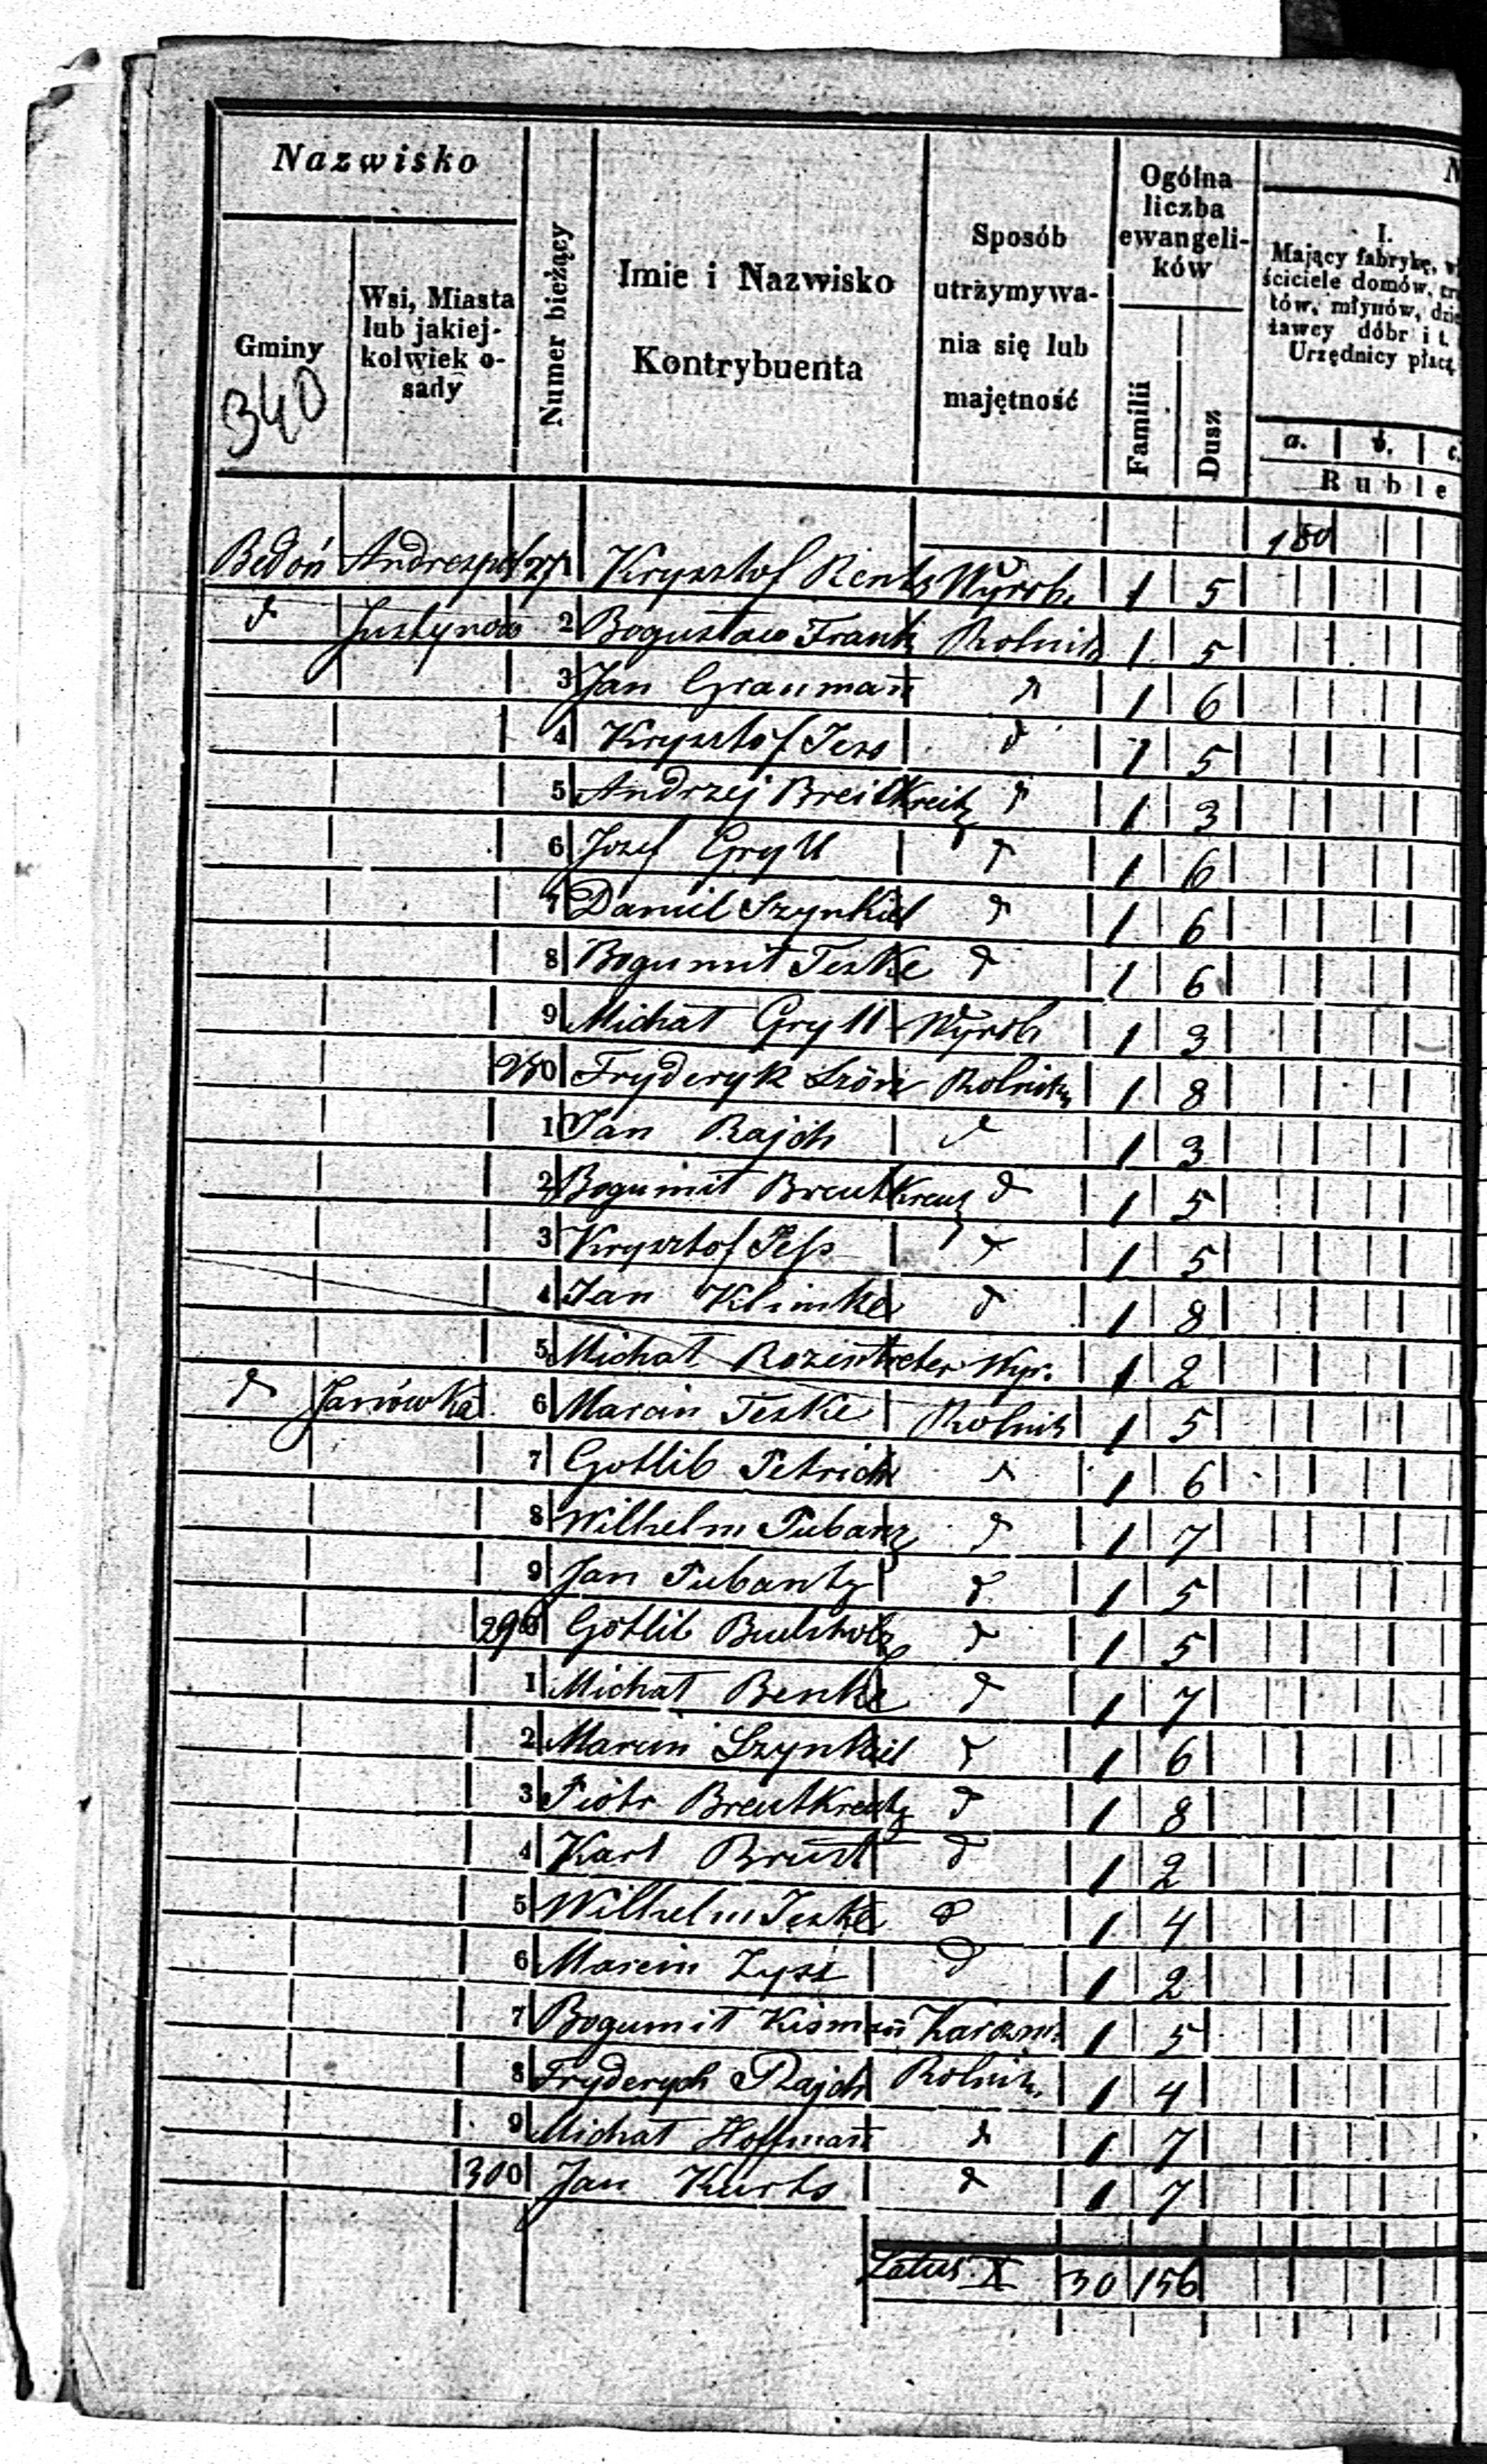 Nazwisko
Gminy
Wsi, Miasta lub jakiej- kolwiek o- sady
Numer bieżący
Imie i Nazwisko Kontrybuenta
Sposób utrzymywa- nia się lub majętność
Ogólna liczba ewangeli- ków
Familii
Dusz
I.
Mający fabrykę,
ściciele domów,
tów, młynów,
ławcy dóbr i t.
Urzędnicy płacą
a. b. c.
Ruble
340
180
Bedoń Andrespol 271 Krysztof Rentz Wyrob. 1 5
d Justynow 2 Bogusław Frank Rolnik 1 5
3 Jan Grauman̄ d 1 6
4 Krysztof Jess d 1 5
5 Andrzej Breitkreitz d 1 3
6 Jozef Gryll d 1 6
7 Daniel Szynkiel d 1 6
8 Bogumił Teske d 1 6
9 Michał Gryll Wyrob 1 3
280 Fryderyk Szön Rolnik 1 8
1 Jan Rajch d 1 3
2 Bogumił Breutkreutz d 1 5
3 Krysztof d 1 5
4 Jan Klimke d 1 8
5 Michał Rozentreter Wyr. 1 2
d Janówka 6 Marcin Teske Rolnik 1 5
7 Gotlib Petrich d 1 6
8 Wilhelm Pubanz d 1 7
9 Jan Pubantz d 1 5
290 Gotlib d 1 5
1 Michał Benke d 1 7
2 Marcin Szynkiel d 1 6
3 Piotr Breutkreutz d 1 8
4 Karl d 1 2
5 Wilhelm Jeske d 1 4
6 Marcin Zysz d 1 2
7 Bogumił Kisman̄ Karczm. 1 5
8 Fryderych Rajch Rolnik. 1 4
9 Michał Hoffman̄ d 1 7
300 Jan Kurts d 1 7
Latus X 30 156